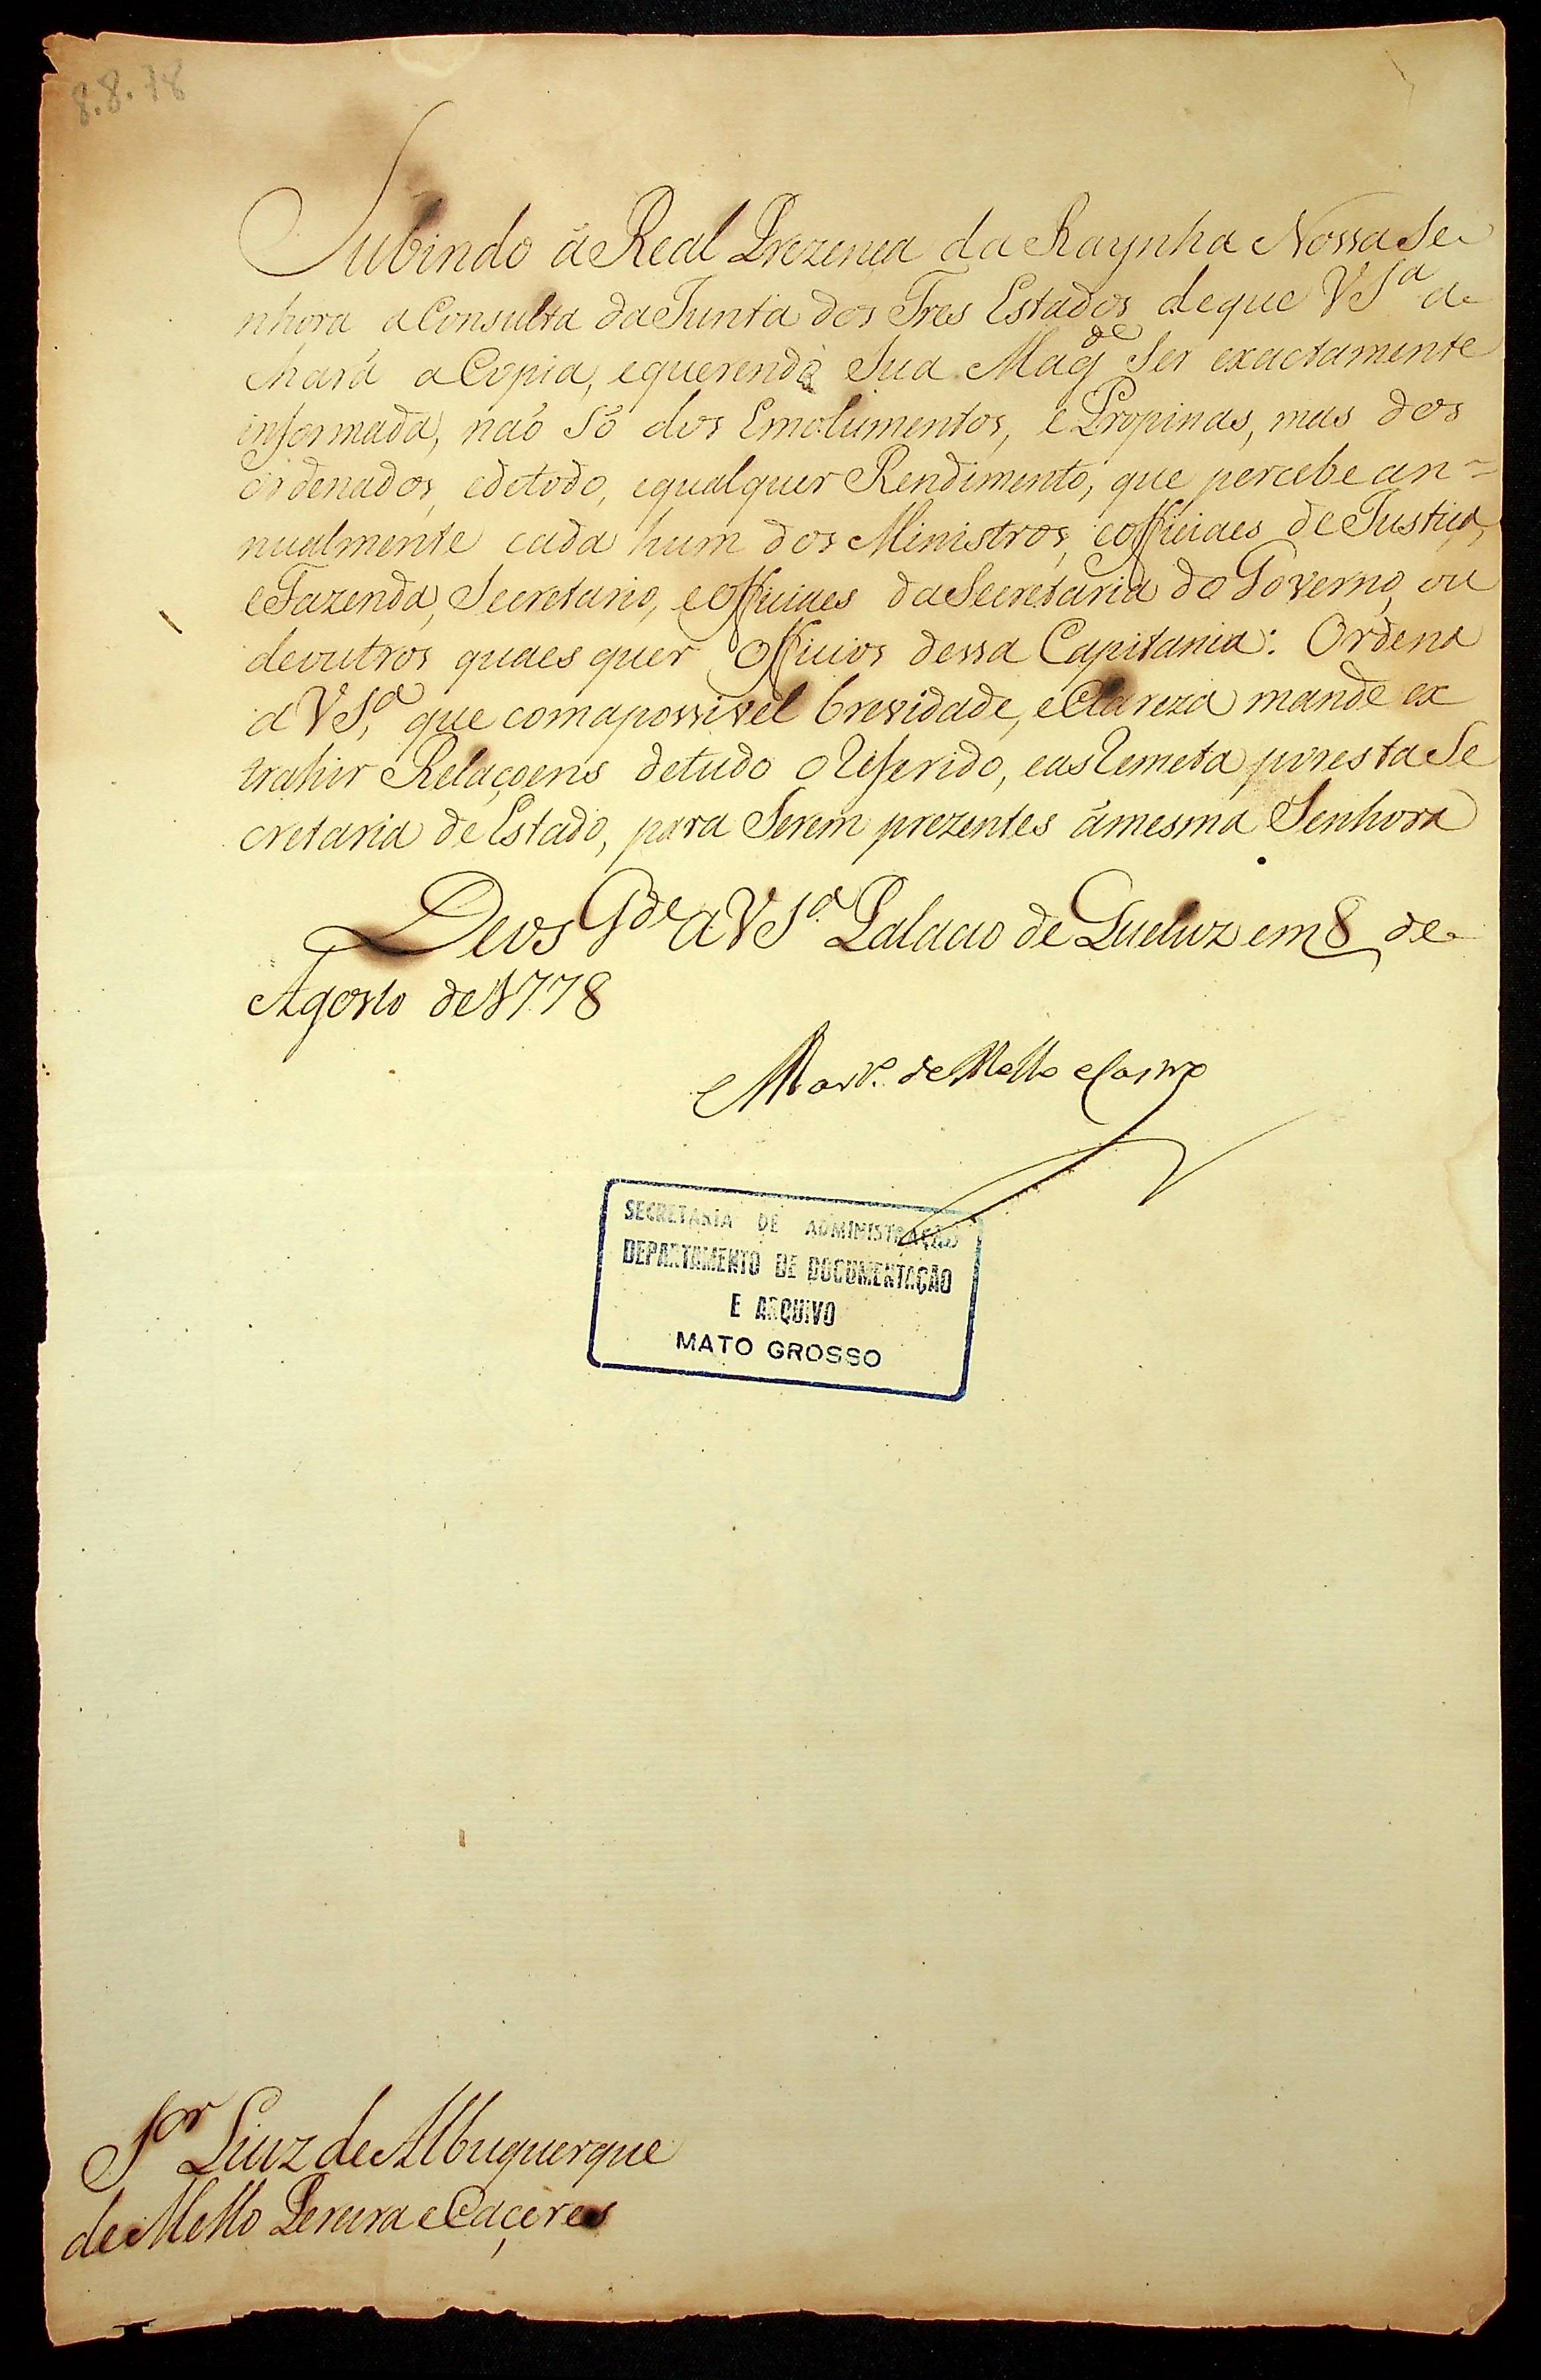 8.8.78
Subindo á Real Prezença da Raynha Nossa Se
nhora a Consulta da Junta dos Tres Estados de que VS.ª a
chará a Copia, e querendo Sua Mag.de Ser exactamente
informada, naõ Só dos Emolumentos, e Propinas, mas dos
Ordenados, e de todo, e qualquer Rendimento, que percebe an=
nualmente cada hum dos Ministros, e Officiaes de Justiça,
e Fazenda, Secretario, e Officiaes da Secretaria do Governo, ou
de outros quaes quer Officios dessa Capitania: Ordena
a VS.ª, que com a possivel brevidade, e Clareza mande ex
trahir Relaçoens de tudo o referido, e as remeta por esta Se
cretaria de Estado, para Serem prezentes á mesma Senhora
Deos G.de a VS.ª Palacio de Queluz em 8 de
Agosto de 1778
Mart.º de Mello e Castro
SECRETARIA DE ADMINISTRAÇÃO
DEPARTAMENTO DE DOCUMENTAÇÃO
E ARQUIVO
MATO GROSSO
S.or Luiz de Albuquerque
de Mello Pereira e Caçeres